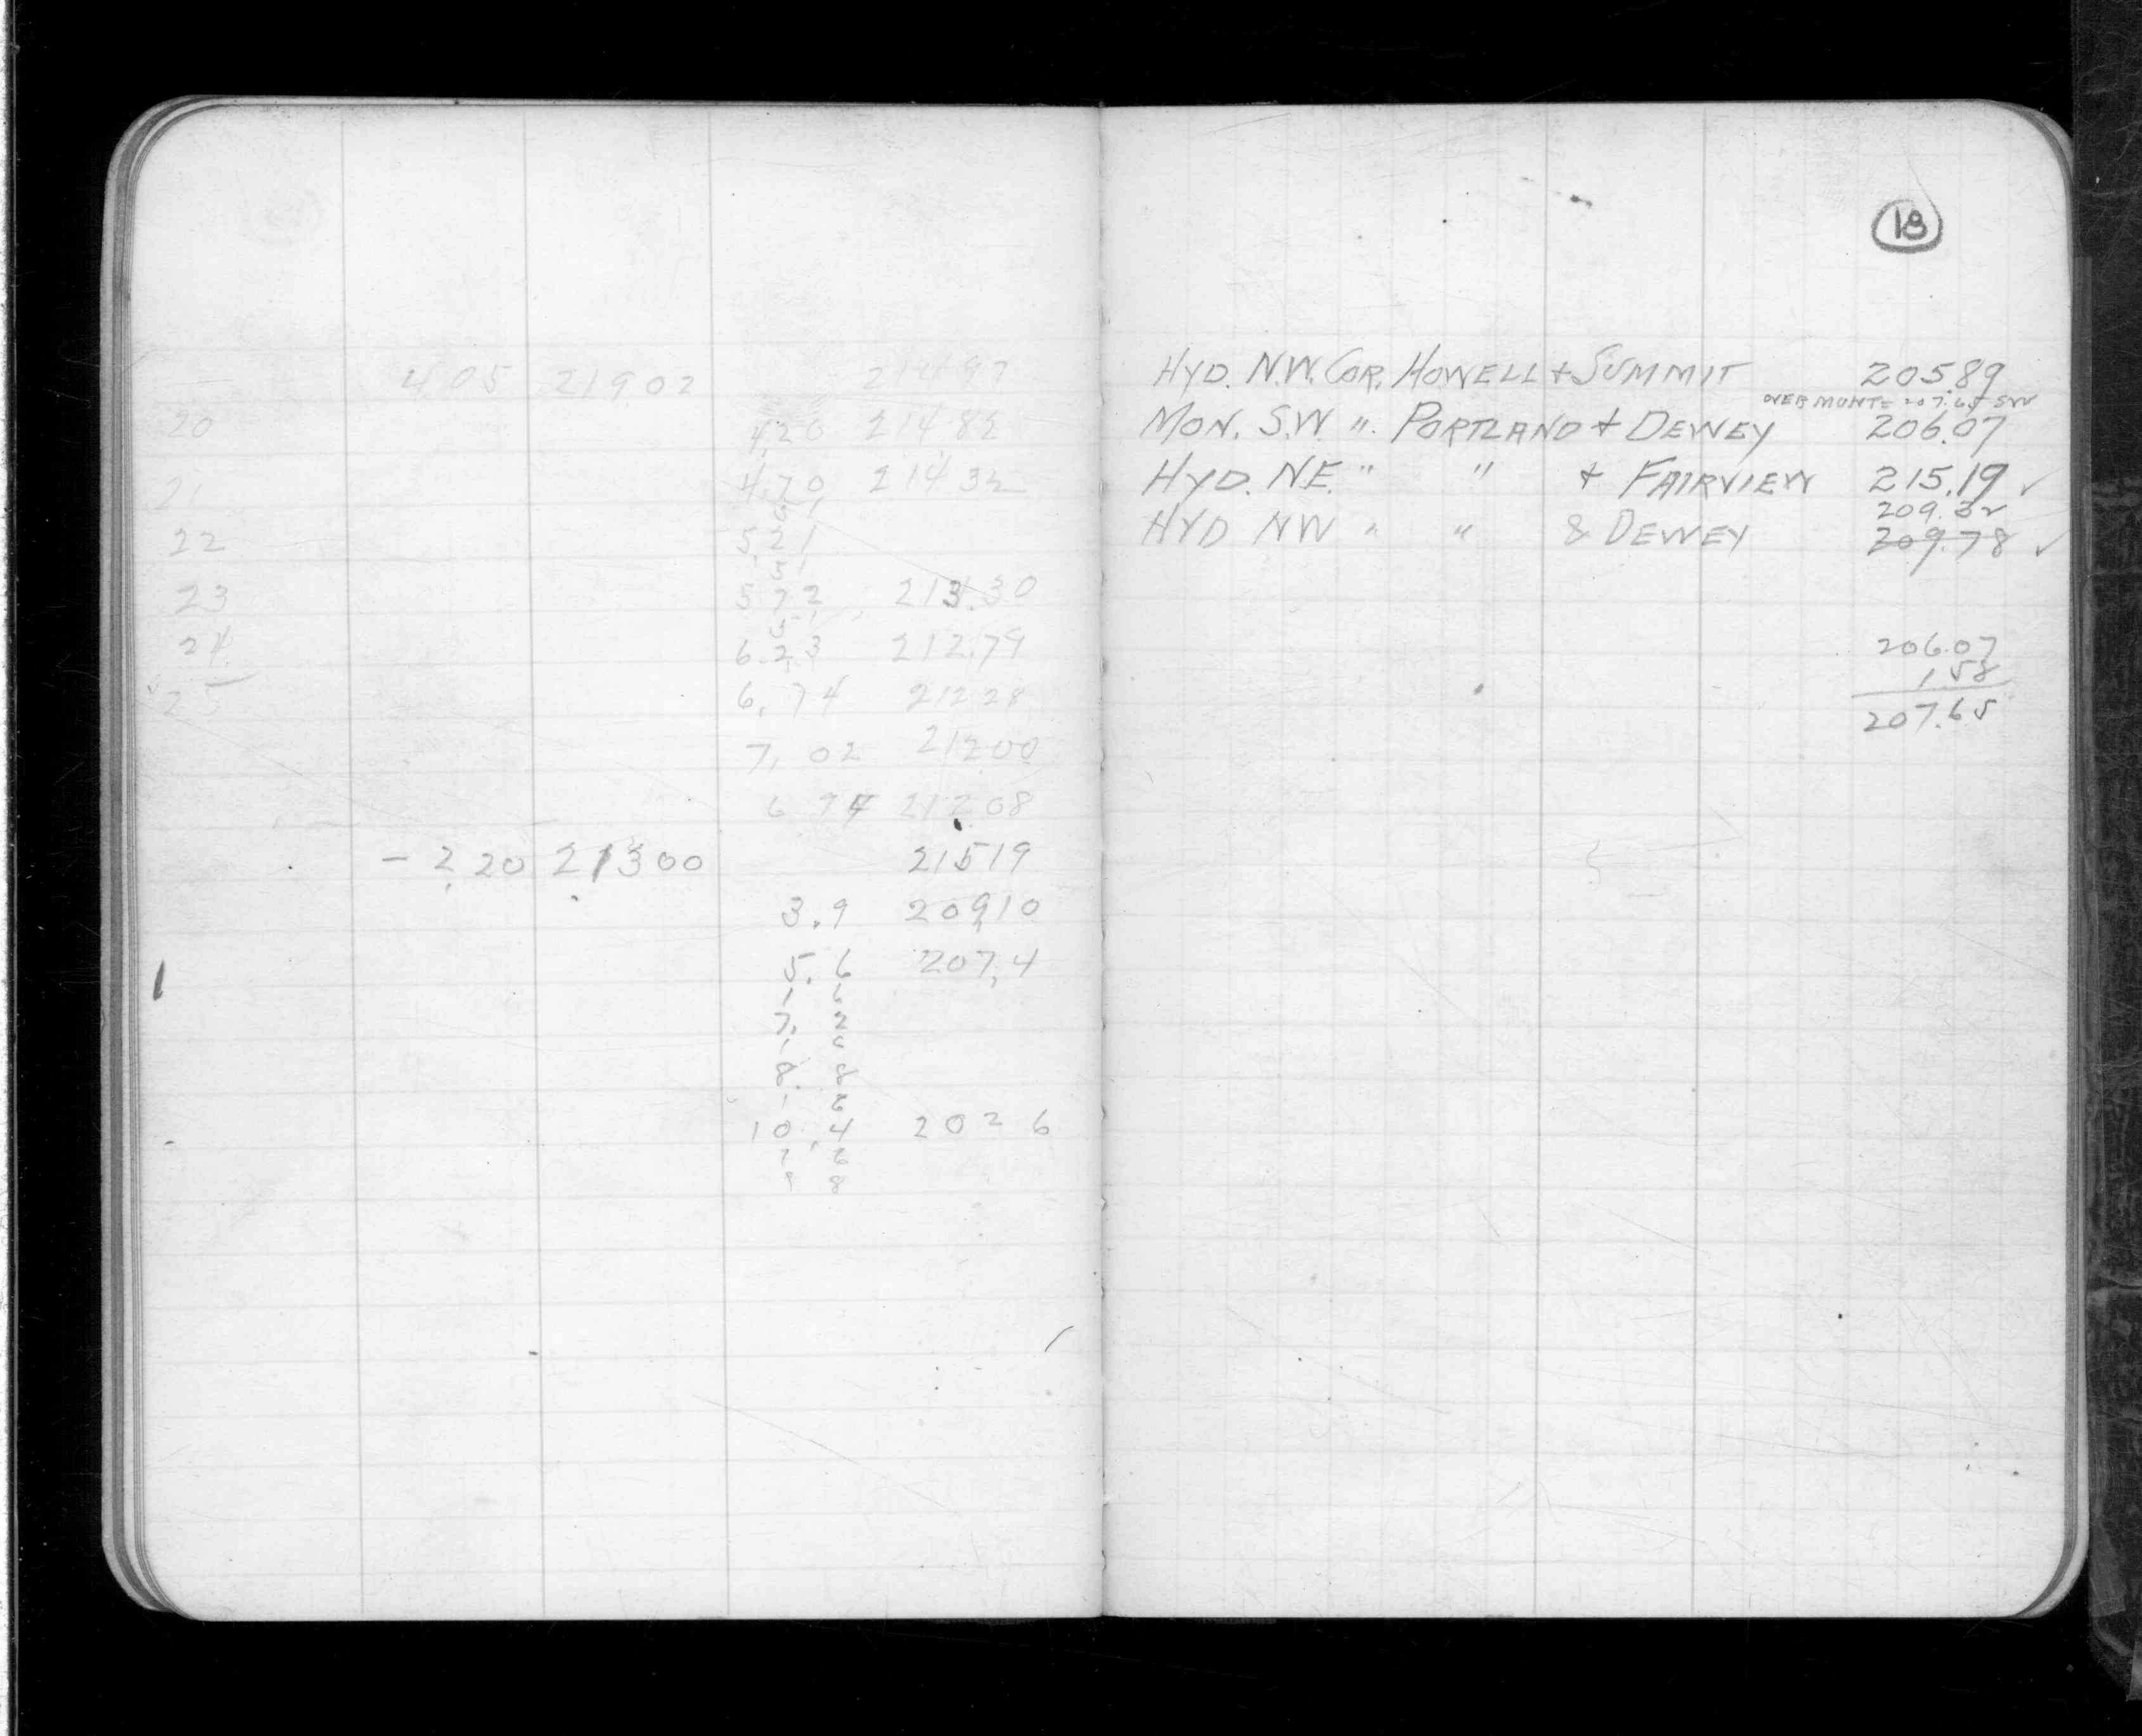 4.05 219.02 214.97
20 4.20 214.82
21 4.70 214.32
22 5.21
51
23 5.72 213.30
51
24 6.23 212.79
25 6.74 212.28
7.02 212.00
6.94 212.08
- 2.20 213.00 215.19
3.9 209.10
5.6 207.4
1 6
7. 2
1 6
8. 8
1 6
10.4 202.6
18
HYD. N.W. COR. HOWELL + SUMMIT 205.89
OVER MONT = 207.65
MON. S.W. " PORTLAND + DEWEY 206.07
HYD. N.E. " " + FAIRVIEW 215.19 ✓
209.
HYD NW " " & DEWEY 209.78 ✓
206.07
1.58
207.65